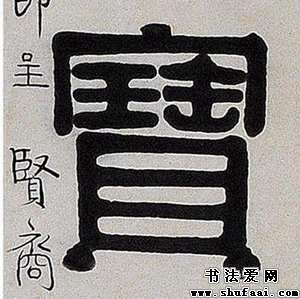 寶
即呈
賢喬
书法爱网
www.shufaai.com